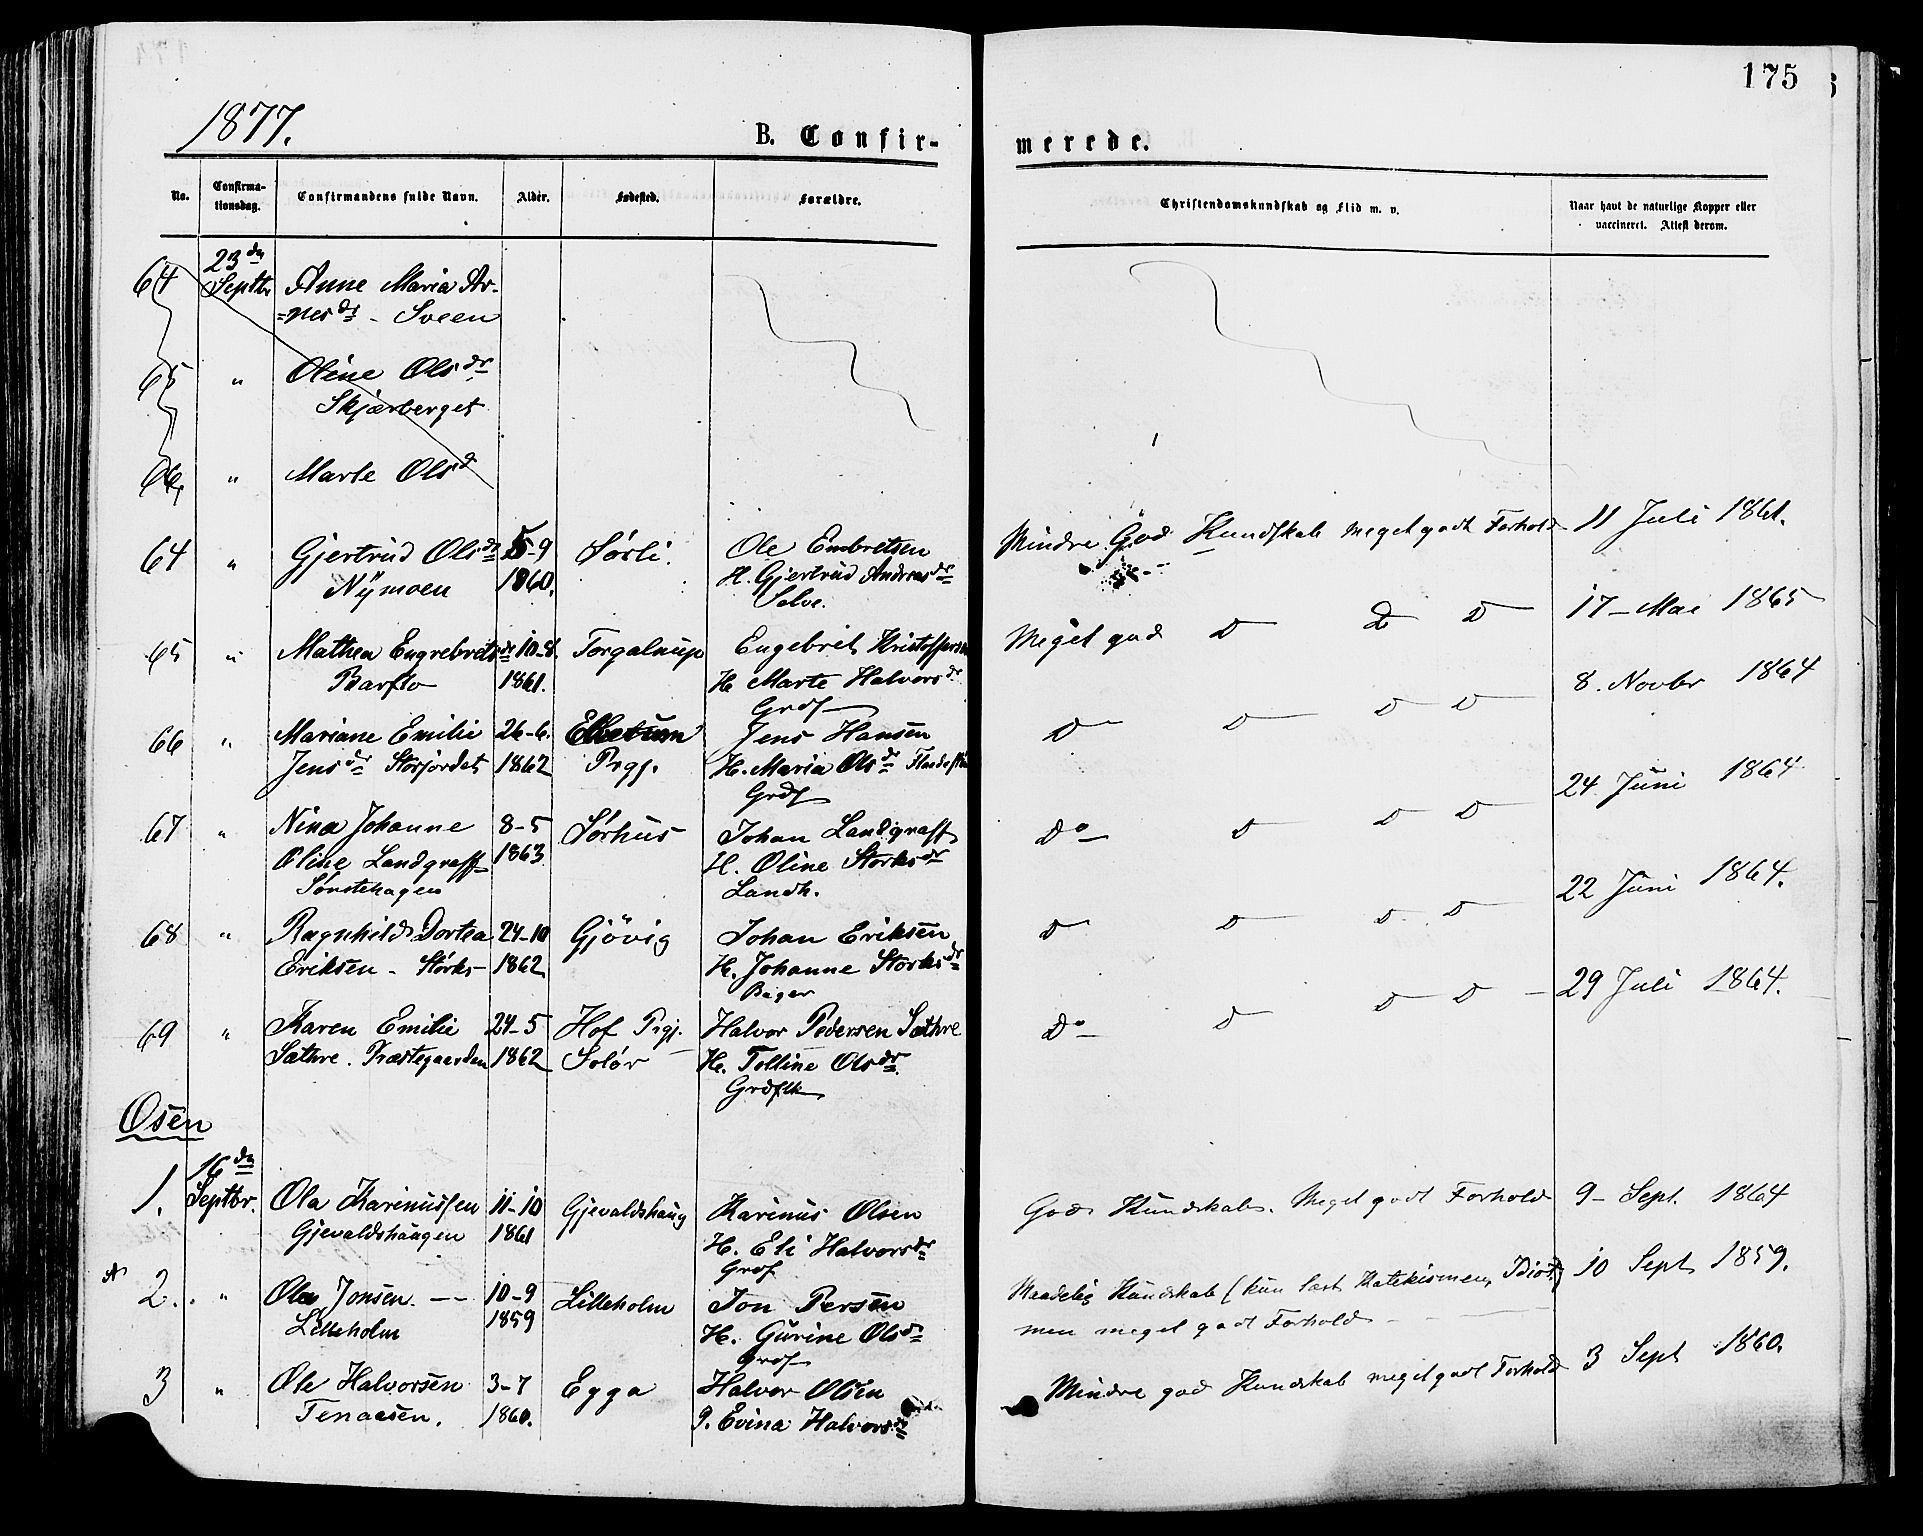 175
1877.
B. Confir-
merede.
No.
Confirma-
tionsdag.
Confirmandens fulde Navn.
Alder.
Fødested.
Forældre.
Christendomskundskab og Flid m. v.
Naar havt de naturlige Kopper eller
vaccineret. Attest derom.
64 23dn Septbr Anne Maria Ar-
=nesdr - Sveen
65 " Oline Olsdr
Skjærberget
66, " Marte Olsd
64 " Gjertrud Olsdr 5-9 Sørli. Ole Embretsen Mindre God Kundskab meget godt Forhold 11 Juli 1861.
Nymoen 1860. H. Gjertrud Andreasdr
Selve.
65 " Mathea Engebretsdr 10-8. Engebret Kristoffersen Meget god D D D 17- Mai 1865
1861. H Marte Halvorsdr
Grdf
66 " Mariane Emilie 26-6. Elverum Jens Hansen D D D D 8. Novbr 1864
Jensdr Storjordet 1862 Prgj. H. Maria Olsdr
Grdf
67 " Nina Johanne 8-5 Sørhus Johan Landgraff Do D D D 24 Juni 1864
Oline Landgraff 1863 H. Oline Størksdr
Sønstehagen Landh.
68 " Ragnhild Dortea 24-10 Gjövig Johan Eriksen D D D D 22 Juni 1864.
Eriksen - Størks- 1862 H. Johanne Størksdr
Bager
69 " Karen Emilie 24-5 Hof Prgj. Halvor Pedersen Sæthre Do D D D 29 Juli 1864.
Sæthre. Præstegaarden 1862 Solør H. Tolline Olsdr
Osen
1. 16dn Septbr. Ola Karinussen 11-10 Gjevaldshaug Karinus Olsen God Kundskab. Meget godt Forhold 9- Sept. 1864
Gjevaldshaugen 1861 H. Eli Halvorsdr
Grdf
2. " Ola Jonsen. 10-9 Lilleholm Jon Persen Maadelig Kundskab (kun læst Katekismen, Idiot) 10 Sept 1859.
Lilleholm 1859 H. Gurine Olsdr men meget godt Forhold
Grdf
3 " Ole Halvorsen 3-7 Egga Halvor Olsen Mindre god Kundskab meget godt Forhold 3 Sept 1860.
Tenaasen. 1860. P. Evina Halvorsdr